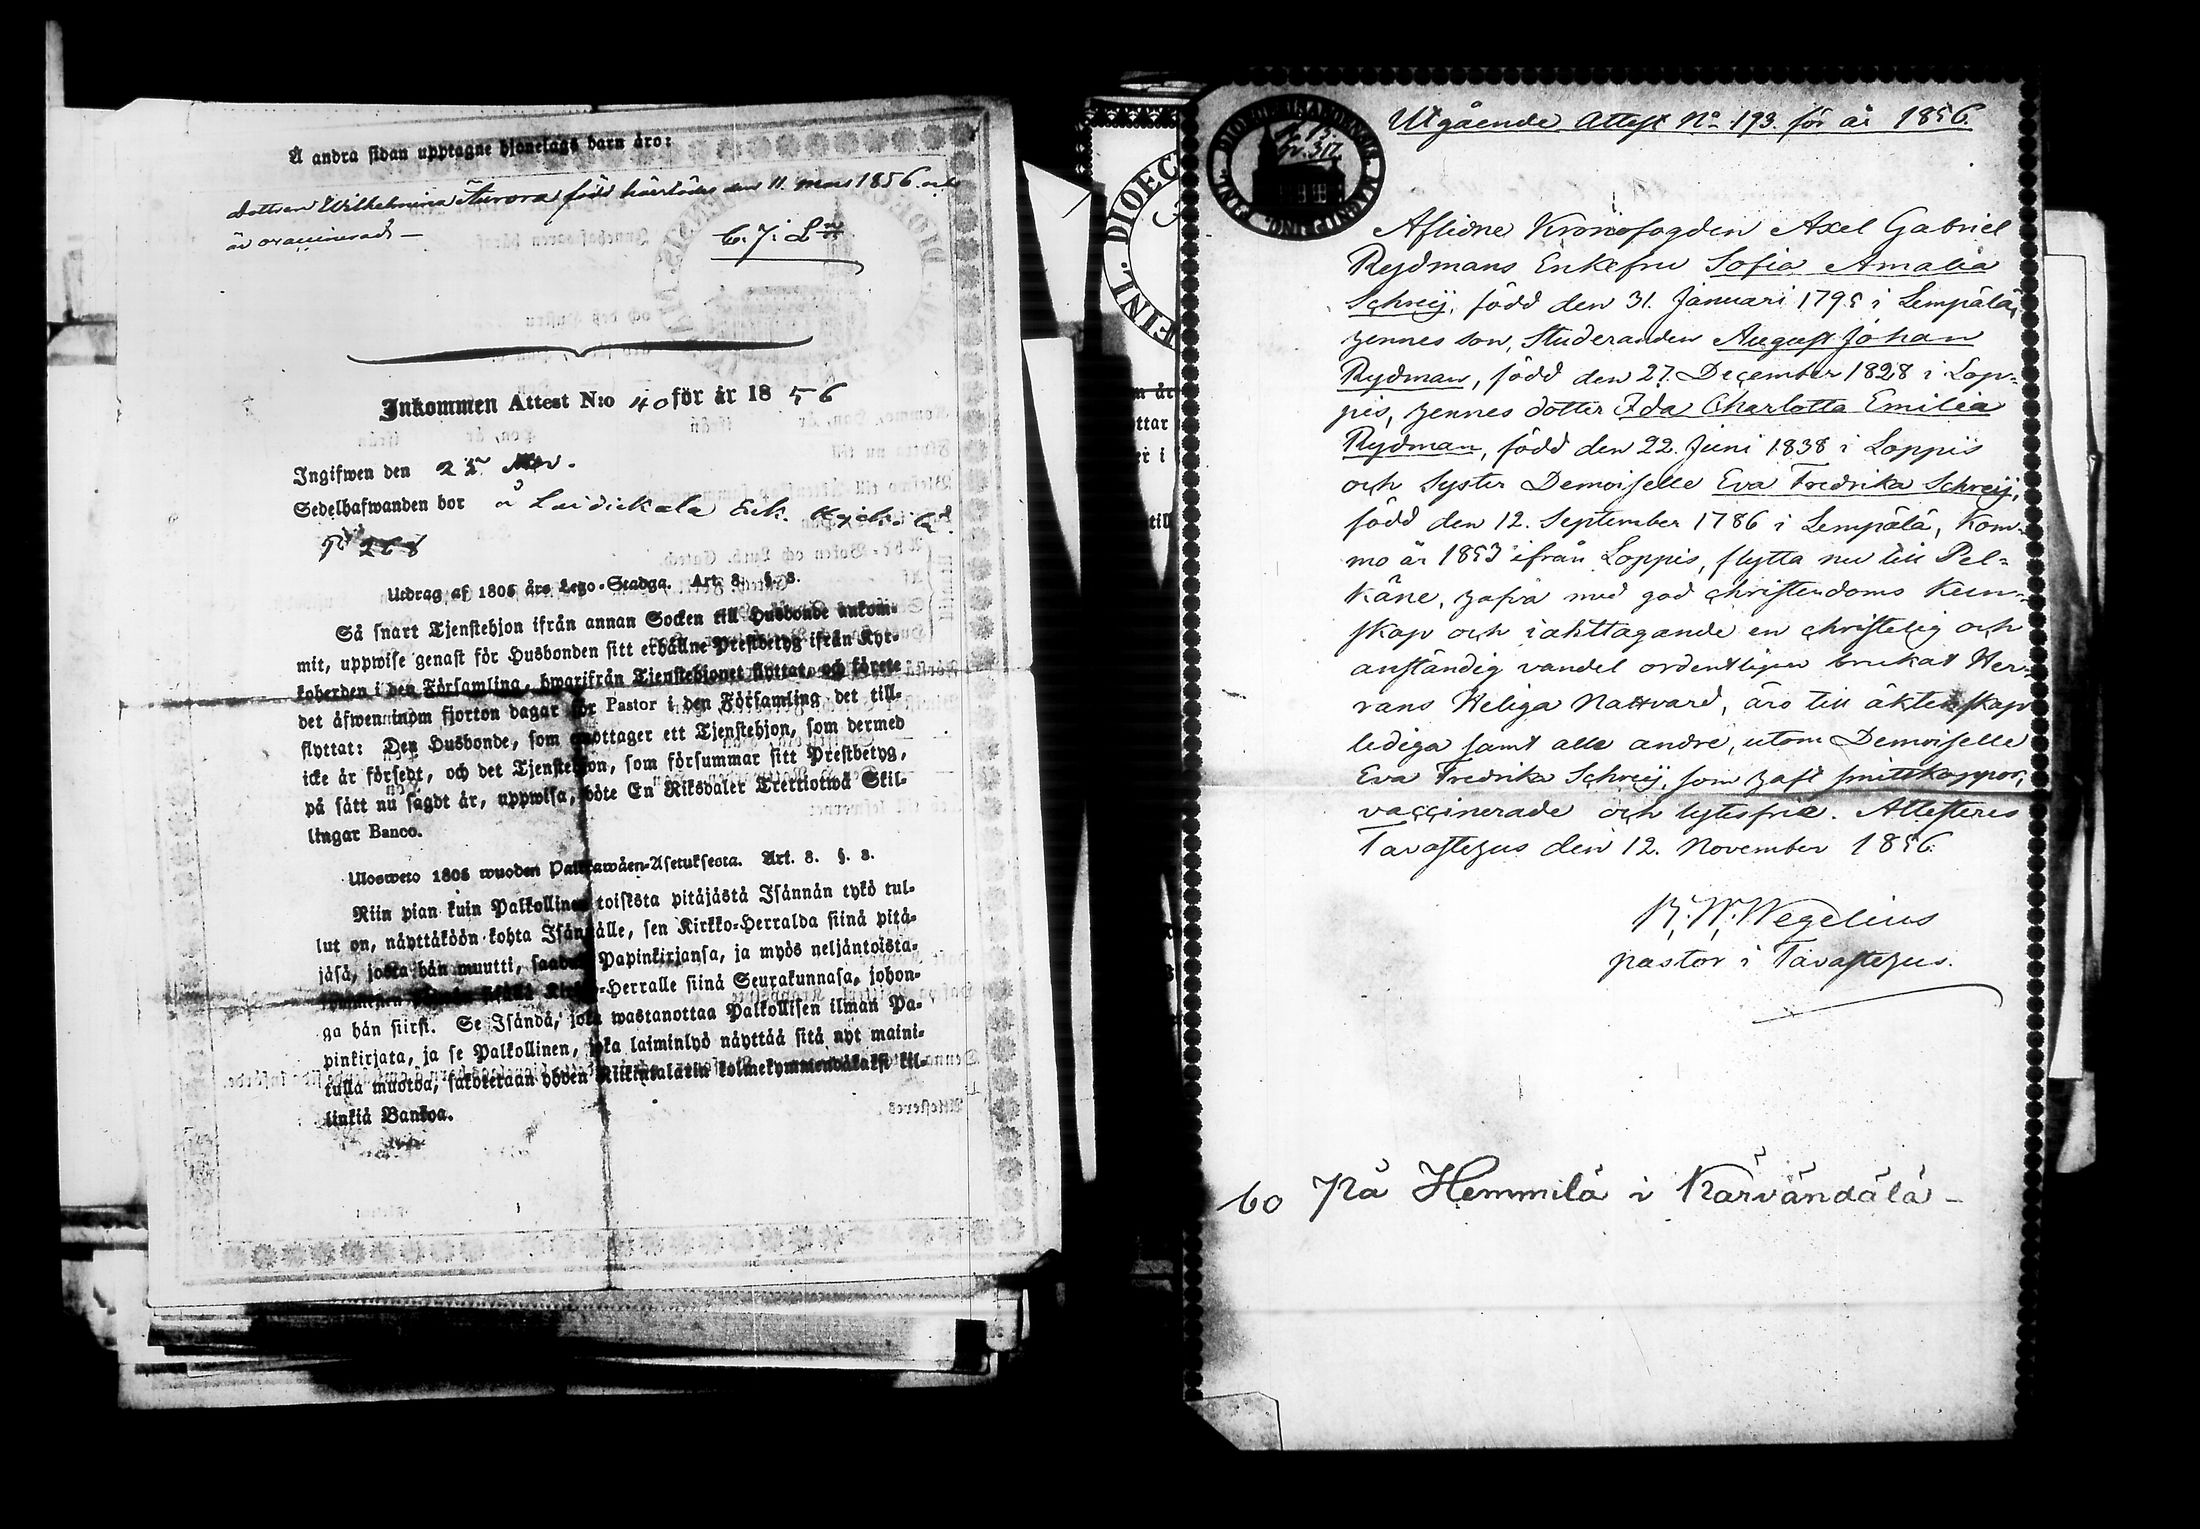 Å andra sidan upptagne hjonelags barn äro:
dottren Wilhelmina Aurora född härstädes den 11 mars 1856 och
är vaccinerad –
C. J. L
Inkommen Attest N:o 40 för år 1856
Ingifwen den 25 Nov.
Sedelhafwanden bor å Laidickala
268
Utdrag af 1805 års Lego-Stadga. Art. 8. §. 3.
Så snart Tjenstehjon ifrån annan Socken till Husbonde ankom-
mit, uppwise genast för Husbonden sitt erhållne Prestbetyg ifrån Kyr-
koherden i den Församling, hwarifrån Tjenstehjonet flyttat, och förete
det äfwen inom fjorton dagar för Pastor i den Församling det till-
flyttat: Den Husbonde, som emottager ett Tjenstehjon, som dermed
icke är försedt, och det Tjenstehjon, som försummar sitt Prestbetyg,
på sätt nu sagdt är, uppwisa, böte En Riksdaler Trettiotwå Skil-
lingar Banco.
Ulosweto 1805 wuoden Palkkawäen-Asetuksesta. Art. 8. §. 3.
Niin pian kuin Palkollinen toisesta pitäjästä Isännän tykö tul-
lut on, näyttäköön kohta Isännälle, sen Kirkko-Herralda siinä pitä-
jäsä, josta hän muutti, saadun Papinkirjansa, ja myös neljäntoista-
Kirkko-Herralle siinä Seurakunnasa, johon-
ga hän siirsi. Se Isändä, joka wastanottaa Palkollisen ilman Pa-
pinkirjata, ja se Palkollinen, joka laiminlyö näyttää sitä nyt maini-
tulla muotoa, sakotetaan yhden Riikintalarin kolmekymmendäkaksi kil-
linkiä Bankoa.
Utgående Attest No 193. för år 1856.
DIOECESIS ABOENSIS. MAGN. PRINC. FINL.
Aflidne Kronofogden Axel Gabriel
Rydmans Enkefru Sofia Amalia
Schreij, född den 31. Januari 1795 i Lempälä,
hennes son, Studeranden August Johan
Rydman, född den 27. December 1828 i Lop-
pis, hennes dotter Ida Charlotta Emilia
Rydman, född den 22. Juni 1838 i Loppis
och syster Demoiselle Eva Fredrika Schreij,
född den 12. September 1786 i Lempälä, kom-
mo år 1853 ifrån Loppis, flytta nu till Pel-
käne, hafva med god christendoms kun-
skap och iakttagande en christelig och
anständig vandel ordentligen brukat Her-
rans Heliga Nattvard, äro till äktenskap
lediga samt alla andre, utom Demoiselle
Eva Fredrika Schreij, som haft smittkoppor,
vaccinerade och lytesfrie. Attesteres
Tavastehus den 12. November 1856.
K. W. Wegelius
pastor i Tavastehus.
bo på Hemmilä i Kärvändälä –